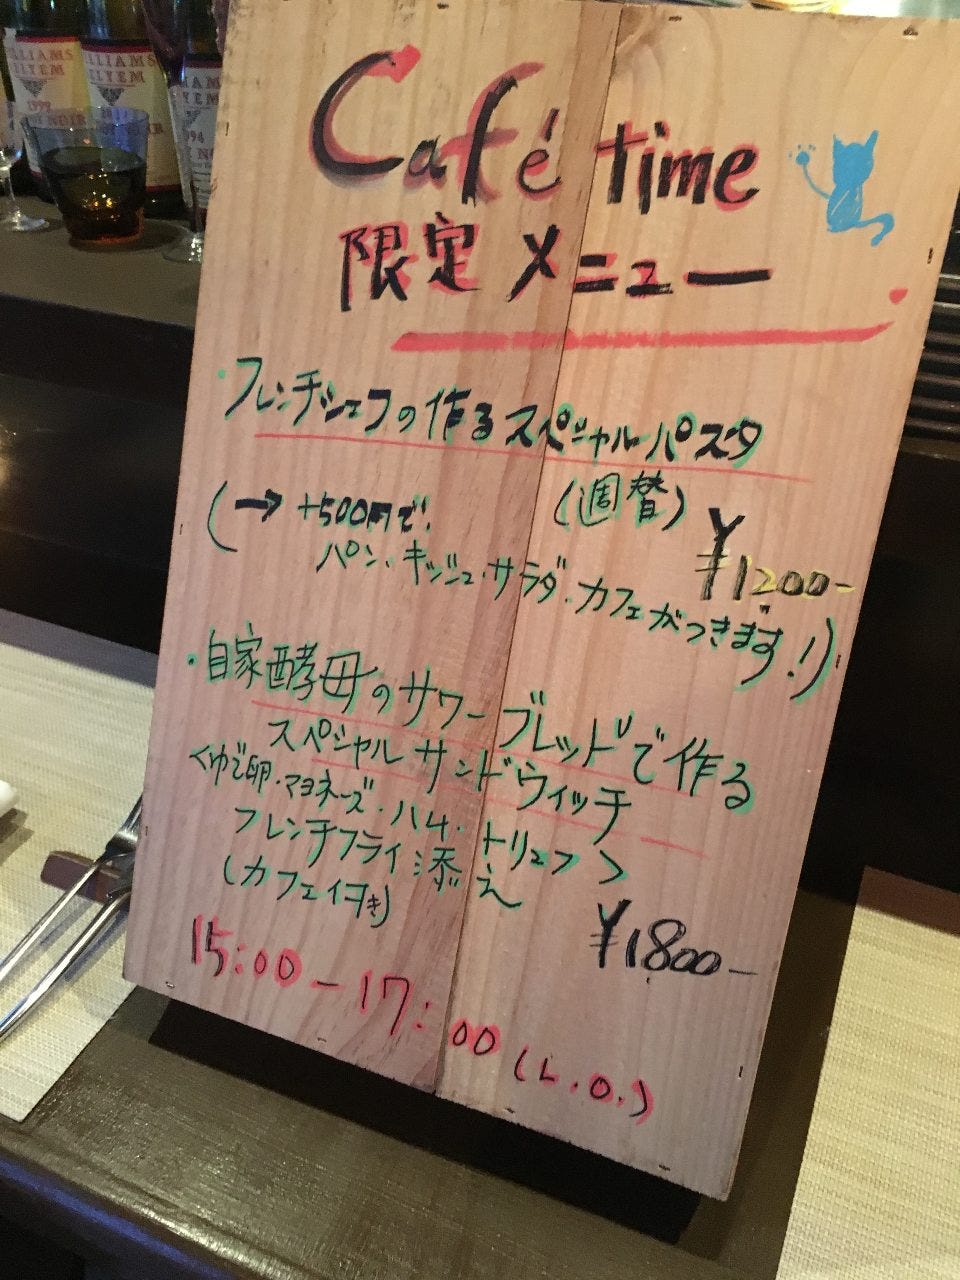 WILLIAMS
SELYEM
1999
NOIR
WILLIAMS
SELYEM
NOIR
1994
Café time
限定メニュー
・フレンチシェフの作るスペシャルパスタ
(週替)
¥1200-
(→ +500円で!
パン・キッシュ・サラダ・カフェがつきます!)
・自家酵母のサワーブレッドで作る
スペシャルサンドウィッチ
<ゆで卵・マヨネーズ・ハム・トリュフ>
フレンチフライ添え
(カフェ付き)
¥1800-
15:00-17:00 (L.O.)